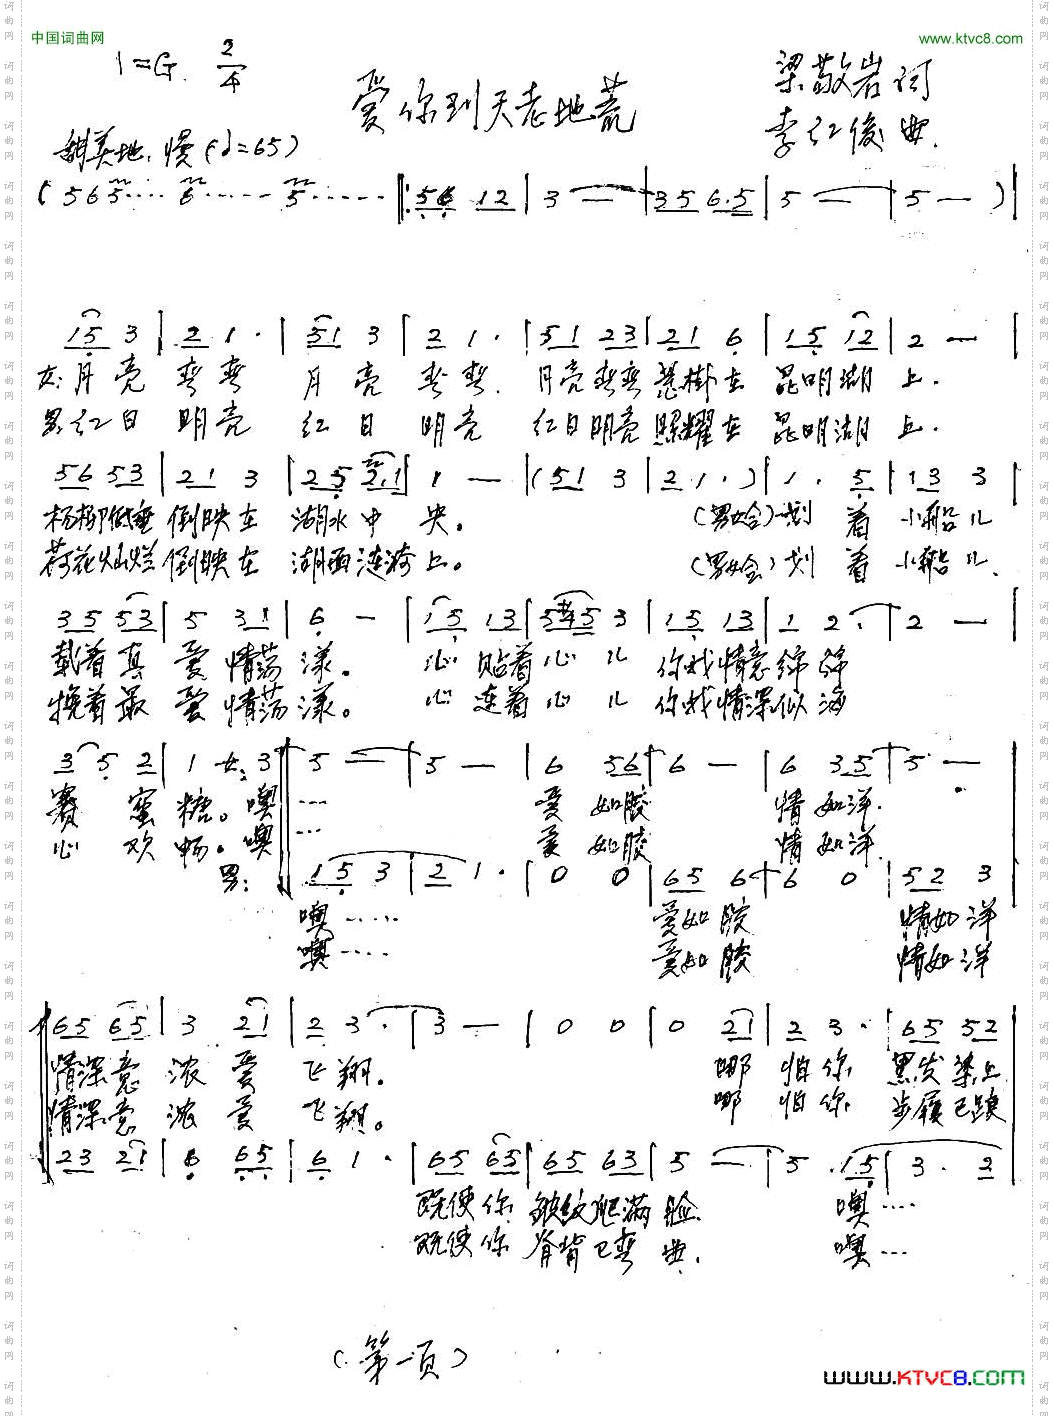 中国词曲网
www.ktvc8.com
1=G 2/4
爱你到天老地荒
梁敬岩词
李红俊曲.
甜美地,慢(♩=65)
(5 6 5···· 6······ 5······ ‖: 5 6 1 2 | 3 — | 3 5 6·5 | 5 — | 5 — ) |
1 5 3 | 2 1· | 5 1 3 | 2 1· | 5 1 2 3 | 2 1 6 | 1 5 1 2 | 2 — |
女:月亮弯弯 月亮弯弯.月亮弯弯悬掛在 昆明湖上.
男:红日明亮 红日明亮 红日明亮照耀在 昆明湖上.
5 6 5 3 | 2 1 3 | 2 5 2·1 | 1 — | (5 1 3 | 2 1·) | 1· 5 | 1 3 3 |
杨柳低垂倒映在 湖水中央。 (男女合)划着小船儿
荷花灿烂倒映在 湖面涟漪上。 (男女合)划着小船儿、
3 5 5 3 | 5 3 1 | 6 — | 1 5 1 3 | 5 #4 5 3 | 1 5 1 3 | 1 2· | 2 — |
载着真爱情荡漾。 心贴着心儿 你我情意绵绵
挽着最爱情荡漾。 心连着心儿 你我情深似海
3 5 2 | 1 女:3 ‖ 5 — | 5 — | 6 5 6 | 6 — | 6 3 5 | 5 — |
赛蜜糖。噢 ··· 爱如胶 情如洋.
心欢畅。噢 ··· 爱如胶 情如洋.
男: ‖ 1 5 3 | 2 1· | 0 0 | 6 5 6 | 6 0 | 5 2 3
噢····· 爱如胶 情如洋
噢···· 爱如胶 情如洋
6 5 6 5 | 3 2 1 | 2 3· | 3 — | 0 0 | 0 2 1 | 2 3· | 6 5 5 2
情深意浓爱飞翔。 哪怕你 黑发染上
情深意浓爱飞翔。 哪怕你 步履已踉
2 3 2 1 | 6 6 5 | 6 1· | 6 5 6 5 | 6 5 6 3 | 5 — | 5· 1 5 | 3· 2
既使你 皱纹爬满脸. 噢····
既使你 脊背已弯曲. 噢···
(第一页)
www.KTVC8.com